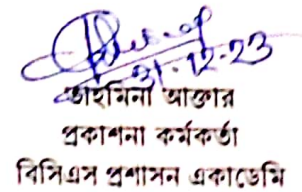 31-12-23
তাহমিনা আক্তার
প্রকাশনা কর্মকর্তা
বিসিএস প্রশাসন একাডেমি